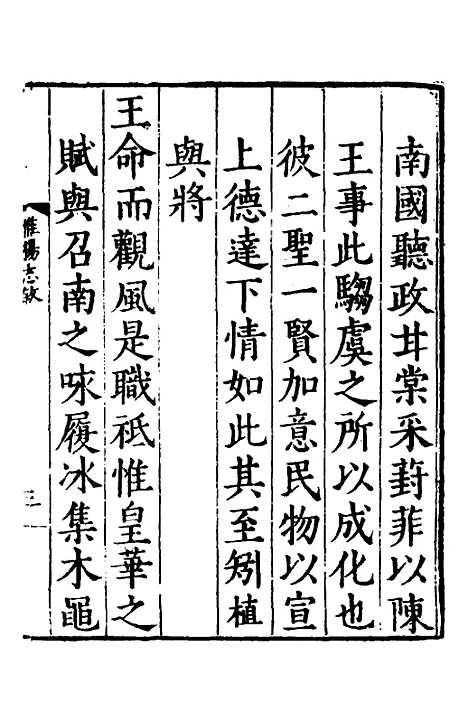 南國聽政甘棠采葑菲以陳
王事此騶虞之所以成化也
彼二聖一賢加意民物以宣
上德達下情如此其至矧植
與將
王命而觀風是職祗惟皇華之
賦與召南之咏履冰集木黽
維揚志敘
三